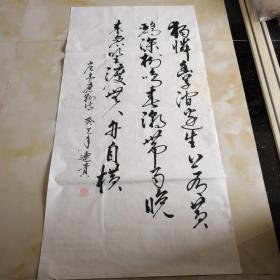 独憐幽草涧邊生上有黄
鹂深树鸣春潮带雨晚
来急野渡無人舟自横
韦应物诗 癸巳年